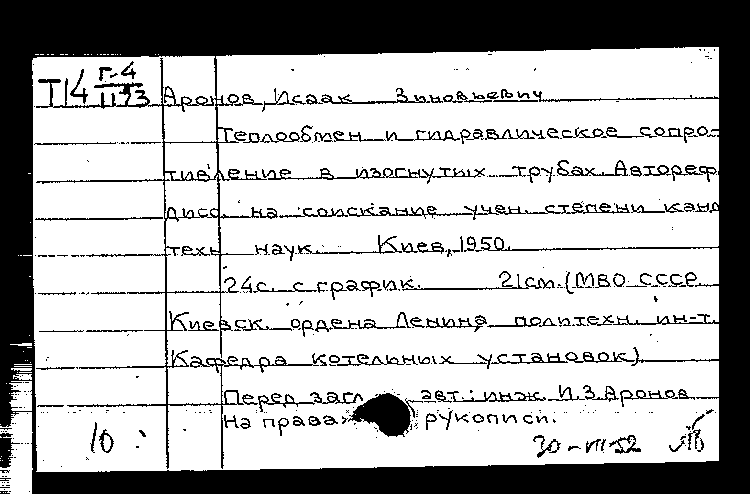 Т14 Г-4
1193
Аронов, Исаак Зиновьевич
Теплообмен и гидравлическое сопро-
тивление в изогнутых трубах. Автореф.
дисс. на соискание учен. степени канд
техн наук. Киев, 1950.
24с. с график. 21см. (МВО СССР
Киевск. ордена Ленина политехн. ин-т.
Кафедра котельных установок).
Перед загл. авт.: инж. И.З. Аронов
На правах рукописи.
10 30-VII-52